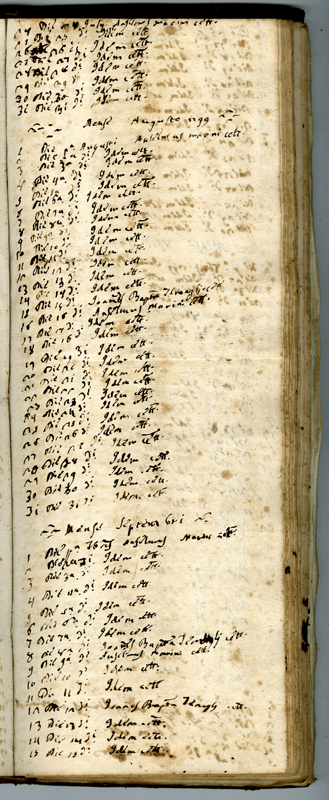 24 Die 24 July Anselmus marini cett.
25 Die 25 d.i Idem cett.
26 Die 26 d.i Idem cett.
27 Die 27 d.i Idem cett.
28 Die 28 d.i Idem cett.
29 Die 29 d.i Idem cett.
30 Die 30 d.i Idem cett.
31 Die 31 d.i Idem cett.
Mense Augusto 1799
1 Die p.a Augusti Anselmus marini cett.
2 Die 2a d.i Idem cett.
3 Die 3a d.i Idem cett.
4 Die 4a d.i Idem cett.
5 Die 5a d.i Idem cett.
6 Die 6a d.i Idem cett.
7 Die 7a d.i Idem cett.
8 Die 8a d.i Idem cett.
9 Die 9 d.i Idem cett.
10 Die 10 d.i Idem cett.
11 Die 11 d.i Idem cett.
12 Die 12 d.i Idem cett.
13 Die 13 d.i Idem cett.
14 Die 14 d.i Idem cett.
15 Die 15 d.i Joannes Bapta cett.
16 Die 16 d.i Anselmus Marini cett.
17 Die 17 d.i Idem cett.
18 Die 18 d.i Idem cett.
19 Die 19 d.i Idem cett.
20 Die 20 d.i Idem cett.
21 Die 21 d.i Idem cett.
22 Die 22 d.i Idem cett.
23 Die 23 d.i Idem cett.
24 Die 24 d.i Idem cett.
25 Die 25 d.i Idem cett.
26 Die 26 d.i Idem cett.
27 Die 27 d.i Idem cett.
28 Die 28 d.i Idem cett.
29 Die 29 d.i Idem cett.
30 Die 30 d.i Idem cett.
31 Die 31 d.i Idem cett.
Mense Septembri
1 Die p.a Anselmus Marini cett.
2 Die 2a d.i Idem cett.
3 Die 3a d.i Idem cett.
4 Die 4a d.i Idem cett.
5 Die 5a d.i Idem cett.
6 Die 6a d.i Idem cett.
7 Die 7a d.i Idem cett.
8 Die 8a d.i Joannes Bapta cett.
9 Die 9a d.i Anselmus marini cett.
10 Die 10 d.i Idem cett.
11 Die 11 d.i Idem cett.
12 Die 12 d.i Joannes Bapta cett.
13 Die 13 d.i Idem cett.
14 Die 14 d.i Idem cett.
15 Die 15 d.i Idem cett.